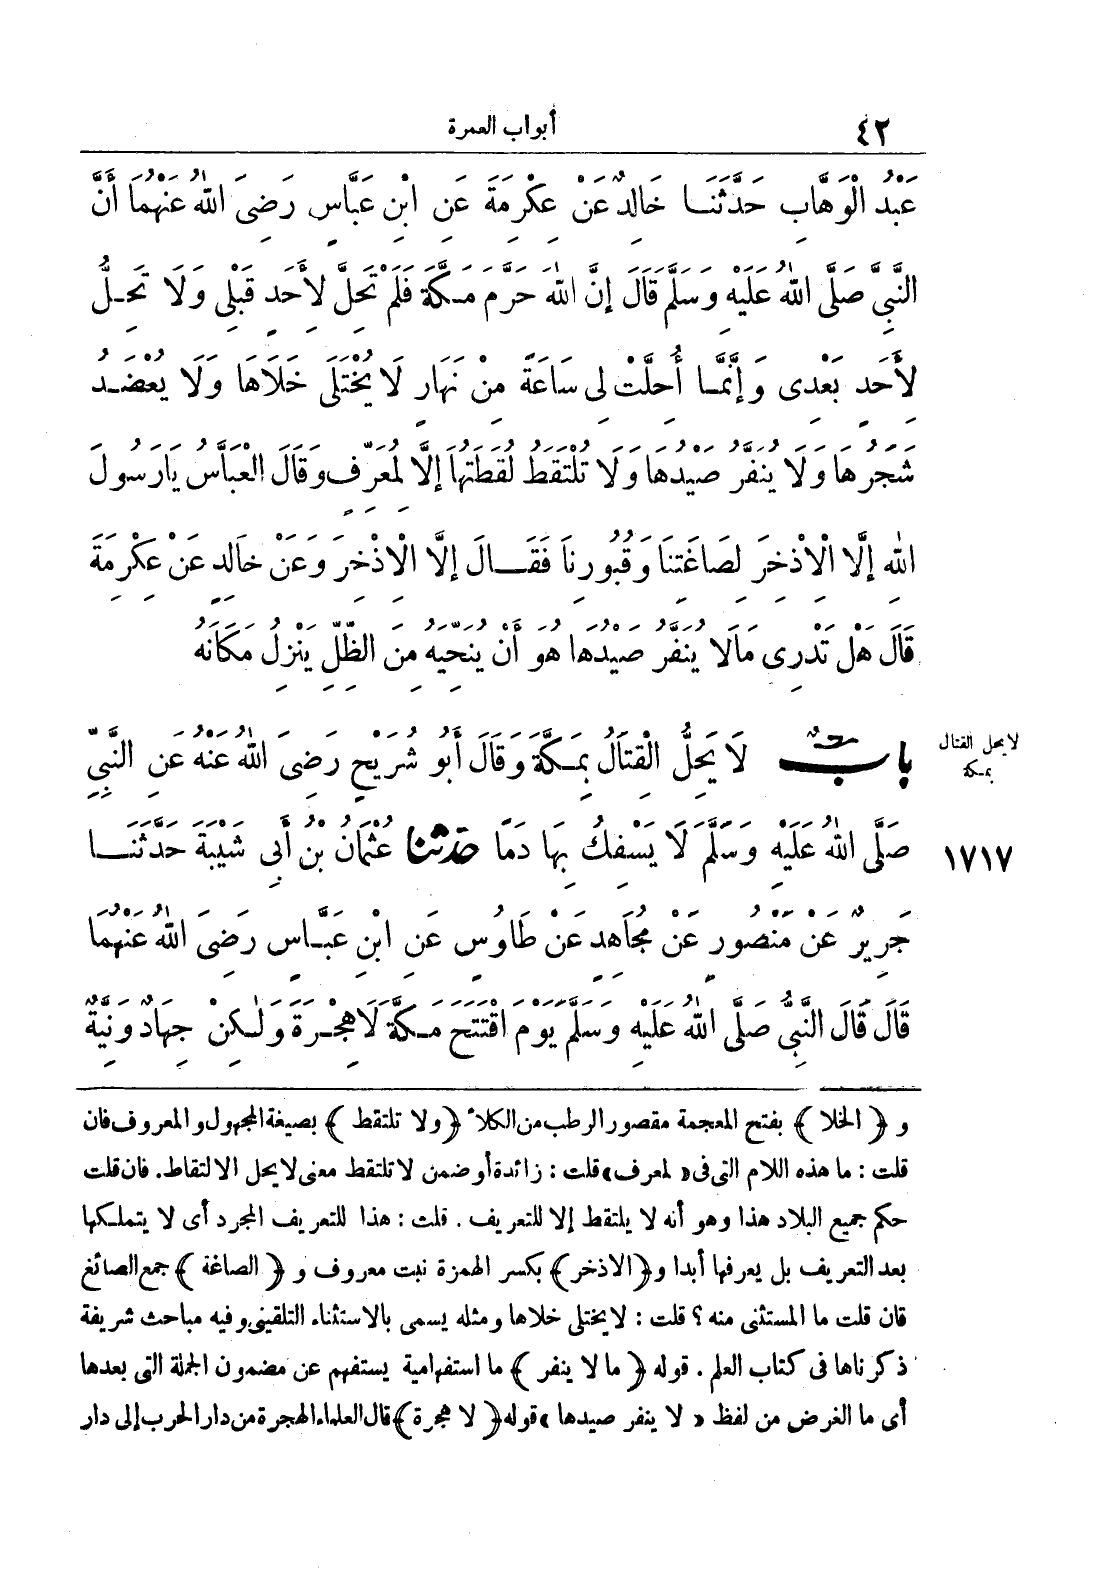 ٤٢
أبواب العمرة
عَبْدُ الْوَهَّابِ حَدَّثَنَا خَالِدٌ عَنْ عِكْرِمَةَ عَنِ ابْنِ عَبَّاسٍ رَضِىَ اللهُ عَنْهُمَا أَنَّ
النَّبِيَّ صَلَّى اللهُ عَلَيْهِ وَسَلَّمَ قَالَ إِنَّ اللهَ حَرَّمَ مَكَّةَ فَلَمْ تَحِلَّ لِأَحَدٍ قَبْلِى وَلَا تَحِلُّ
لِأَحَدٍ بَعْدِى وَإِنَّمَا أُحِلَّتْ لِى سَاعَةً مِنْ نَهَارٍ لَا يُخْتَلَى خَلَاهَا وَلَا يُعْضَدُ
شَجَرُهَا وَلَا يُنَفَّرُ صَيْدُهَا وَلَا تُلْتَقَطُ لُقَطَتُهَا إِلَّا لِمُعَرِّفٍ وَقَالَ الْعَبَّاسُ يَارَسُولَ
اللهِ إِلَّا الْإِذْخِرَ لِصَاغَتِنَا وَقُبُورِنَا فَقَالَ إِلَّا الْإِذْخِرَ وَعَنْ خَالِدٍ عَنْ عِكْرِمَةَ
قَالَ هَلْ تَدْرِى مَا لَا يُنَفَّرُ صَيْدُهَا هُوَ أَنْ يُنَحِّيَهُ مِنَ الظِّلِّ يَنْزِلُ مَكَانَهُ
بَابٌ لَا يَحِلُّ الْقِتَالُ بِمَكَّةَ وَقَالَ أَبُو شُرَيْحٍ رَضِىَ اللهُ عَنْهُ عَنِ النَّبِيِّ
لا يحل القتال
بمكة
صَلَّى اللهُ عَلَيْهِ وَسَلَّمَ لَا يَسْفِكُ بِهَا دَمًا حَدَّثَنَا عُثْمَانُ بْنُ أَبِى شَيْبَةَ حَدَّثَنَا
١٧١٧
جَرِيرٌ عَنْ مَنْصُورٍ عَنْ مُجَاهِدٍ عَنْ طَاوُسٍ عَنِ ابْنِ عَبَّاسٍ رَضِىَ اللهُ عَنْهُمَا
قَالَ قَالَ النَّبِيُّ صَلَّى اللهُ عَلَيْهِ وَسَلَّمَ يَوْمَ افْتَتَحَ مَكَّةَ لَا هِجْرَةَ وَلٰكِنْ جِهَادٌ وَنِيَّةٌ
و ﴿الخلا﴾ بفتح المعجمة مقصور الرطب من الكلأ ﴿ولا تلتقط﴾ بصيغة المجهول والمعروف فان
قلت: ما هذه اللام التى فى «لمعرف» قلت: زائدة أو ضمن لا تلتقط معنى لا يحل الالتقاط. فان قلت
حكم جميع البلاد هذا وهو أنه لا يلتقط إلا للتعريف. قلت: هذا للتعريف المجرد أى لا يتملكها
بعد التعريف بل يعرفها أبدا و﴿الاذخر﴾ بكسر الهمزة نبت معروف و ﴿الصاغة﴾ جمع الصائغ
فان قلت ما المستثنى منه؟ قلت: لا يختلى خلاها ومثله يسمى بالاستثناء التلقينى وفيه مباحث شريفة
ذكرناها فى كتاب العلم. قوله ﴿ما لا ينفر﴾ ما استفهامية يستفهم عن مضمون الجملة التى بعدها
أى ما الغرض من لفظ «لا ينفر صيدها» قوله ﴿لا هجرة﴾ قال العلماء الهجرة من دار الحرب إلى دار